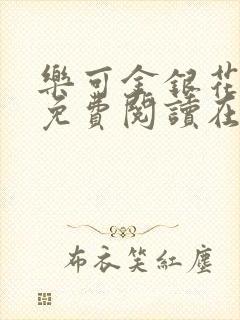 樂可金銀花
免費閱讀在
布衣笑紅塵